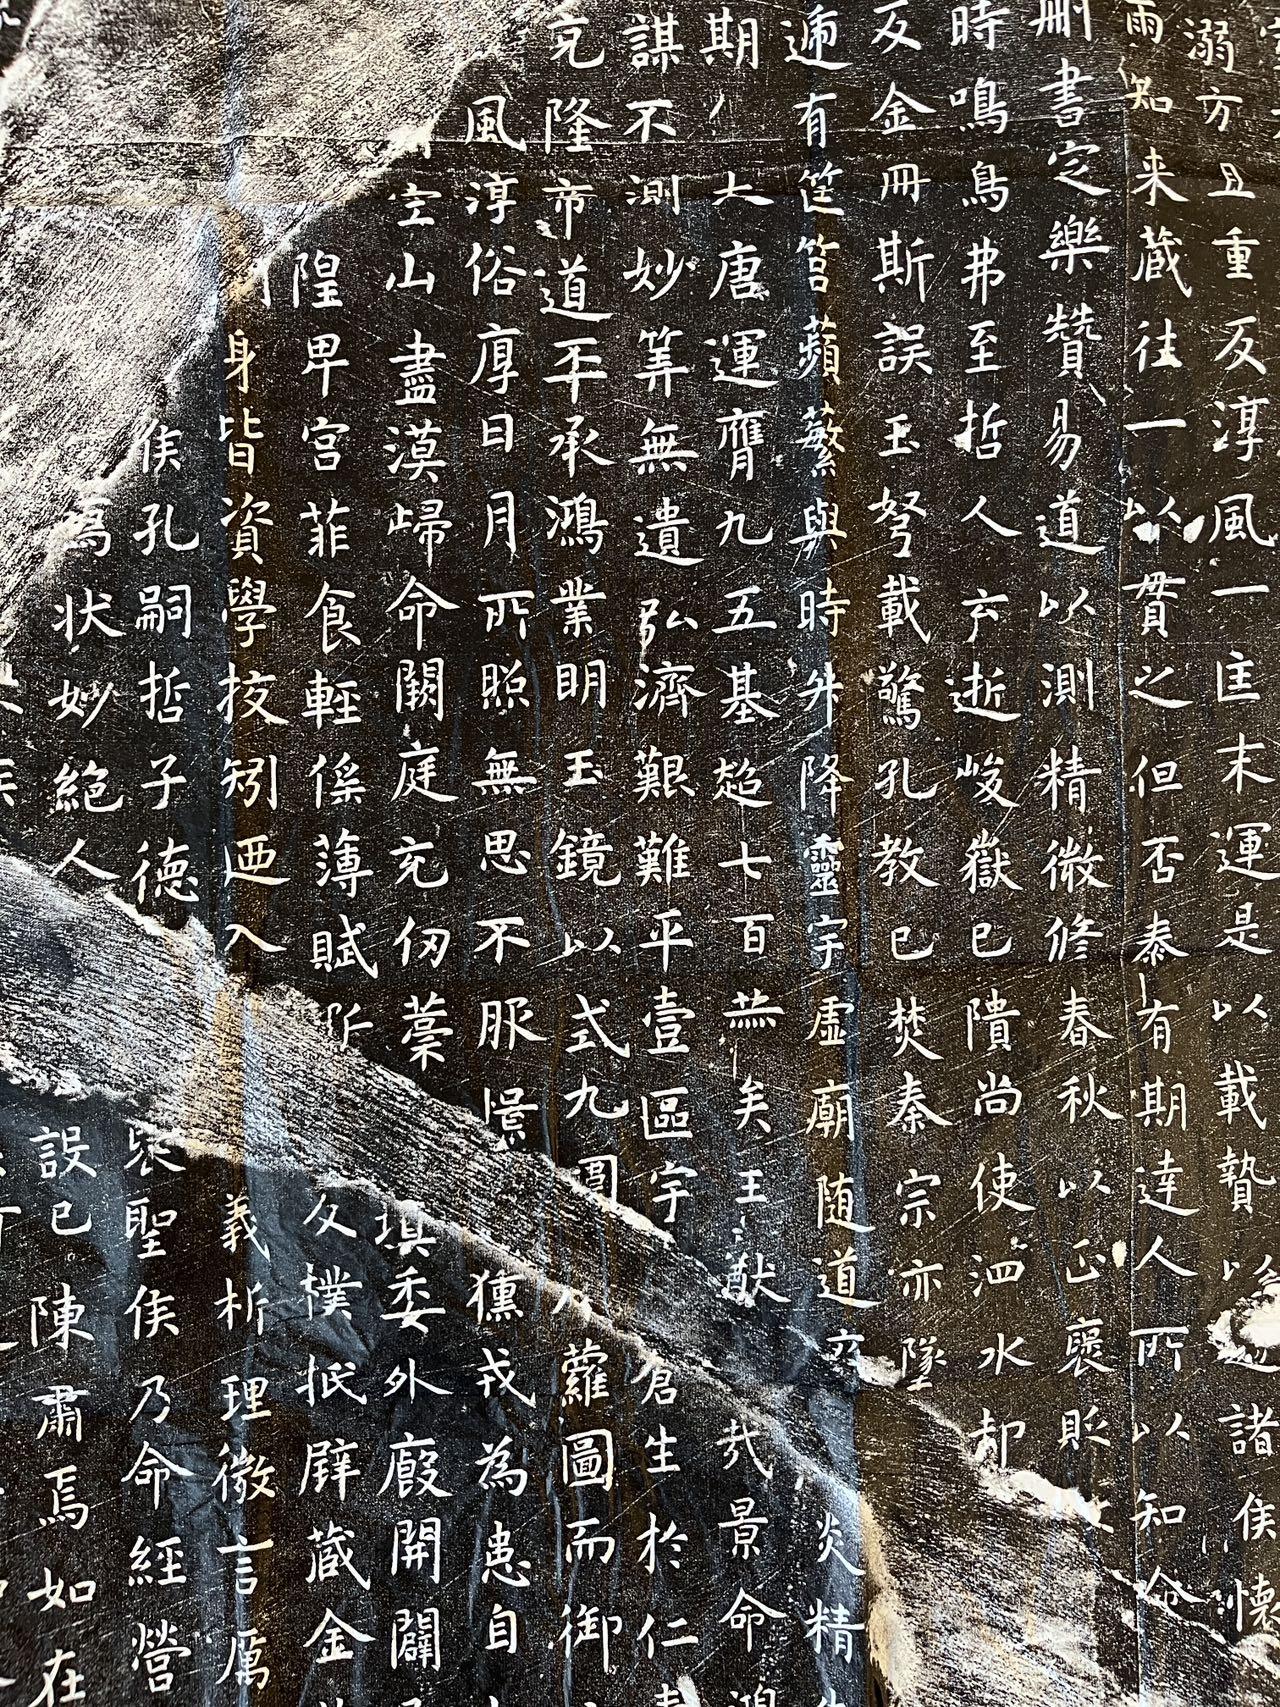 溺方且重反淳風一匡末運是以載贄以適諸侯懷
雨知来藏往一以貫之但否泰有期達人所以知命
刪書定樂贊易道以測精微修春秋以正褒貶
時鳴鳥弗至哲人云逝峻嶽已隤尚使泗水却
反金冊斯誤玉弩載驚孔教已焚秦宗亦墜
遞有筐筥蘋蘩與時升降靈宇虛廟随道廢炎精
期大唐運膺九五基超七百赫矣王猷烈景命鴻
謀不測妙筭無遺弘濟艱難平壹區宇倉生於仁壽
克隆帝道丕承鴻業明玉鏡以式九圍蘿圖而御
風淳俗厚日月所照無思不服憬獯戎為患自
空山盡漠歸命闕庭充仞藁填委外廄開闢
隍卑宮菲食輕徭薄賦斲反樸抵璧藏金
身皆資學技矧迺入義析理微言厲
侯孔嗣哲子德褒聖侯乃命經營
爲狀妙絶人設已陳肅焉如在